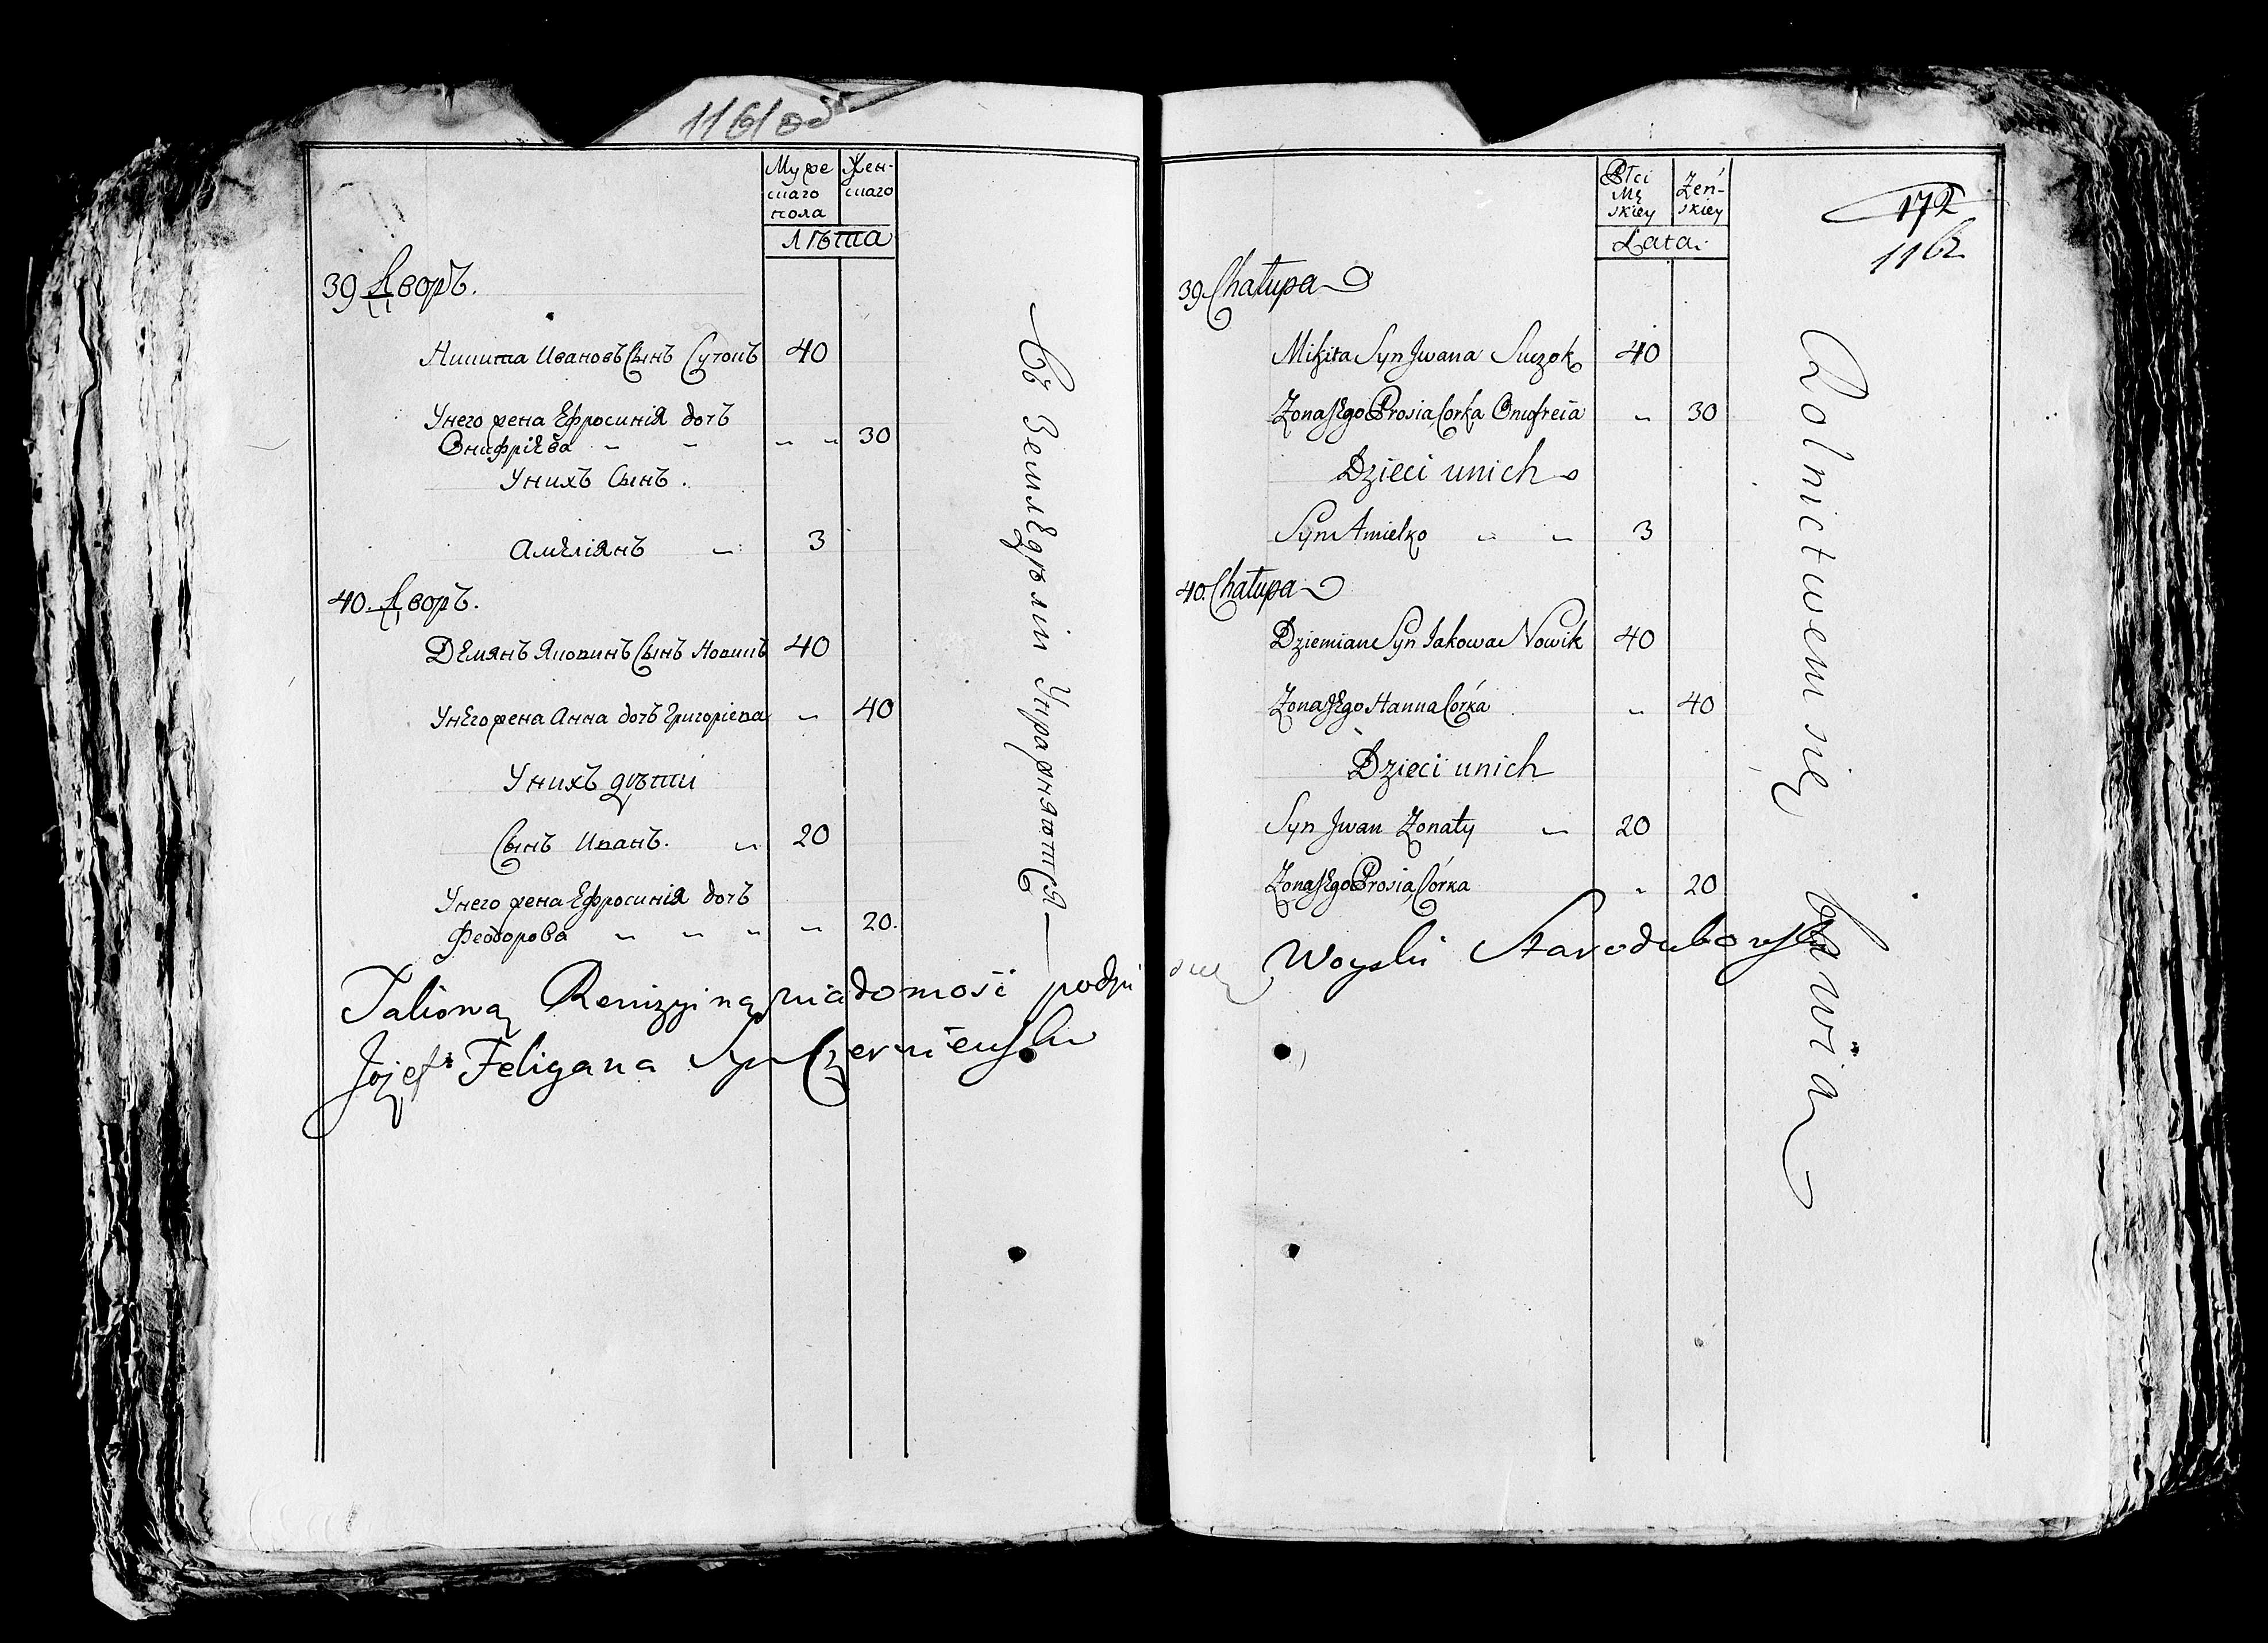 1161 об
Муже
скаго
пола
Жен-
скаго
лѣта
39 Дворъ.
Никита Ивановъ Сынъ Сучокъ 40
Унего жена Ефросинія дочь
Онифріева „ „ „ „ 30
Унихъ Сынъ.
Амеліянъ „ 3
40 Дворъ.
Демянъ Яковинъ Сынъ Новикъ 40
Унего жена Анна дочь Григоріева „ 40
Унихъ дѣти
Сынъ Иванъ. „ 20
Унего жена Ефросинія дочь
Феодорова „ „ „ „ 20.
Въ Земледѣліи Упражняются
Taliową Rewizyiną wiadomość podpi
Jozef Felixana Syn Czerniewski
Płci
Mę
skiey
Żeń-
skiey
Lata.
172
1162
39 Chałupa
Mikita Syn Jwana Suczok 40
Zona Jego Prosia Corka Onufreia „ 30
Dzieci unich
Syn Amielko „ „ 3
40. Chałupa
Dziemian Syn Jakowa Nowik 40
Zona Jego Hanna Córka „ 40
Dzieci unich
Syn Jwan Zonaty „ 20
Zona Jego Prosia Córka „ 20
Woyski Starodubowski
Rolnictwem się bawią